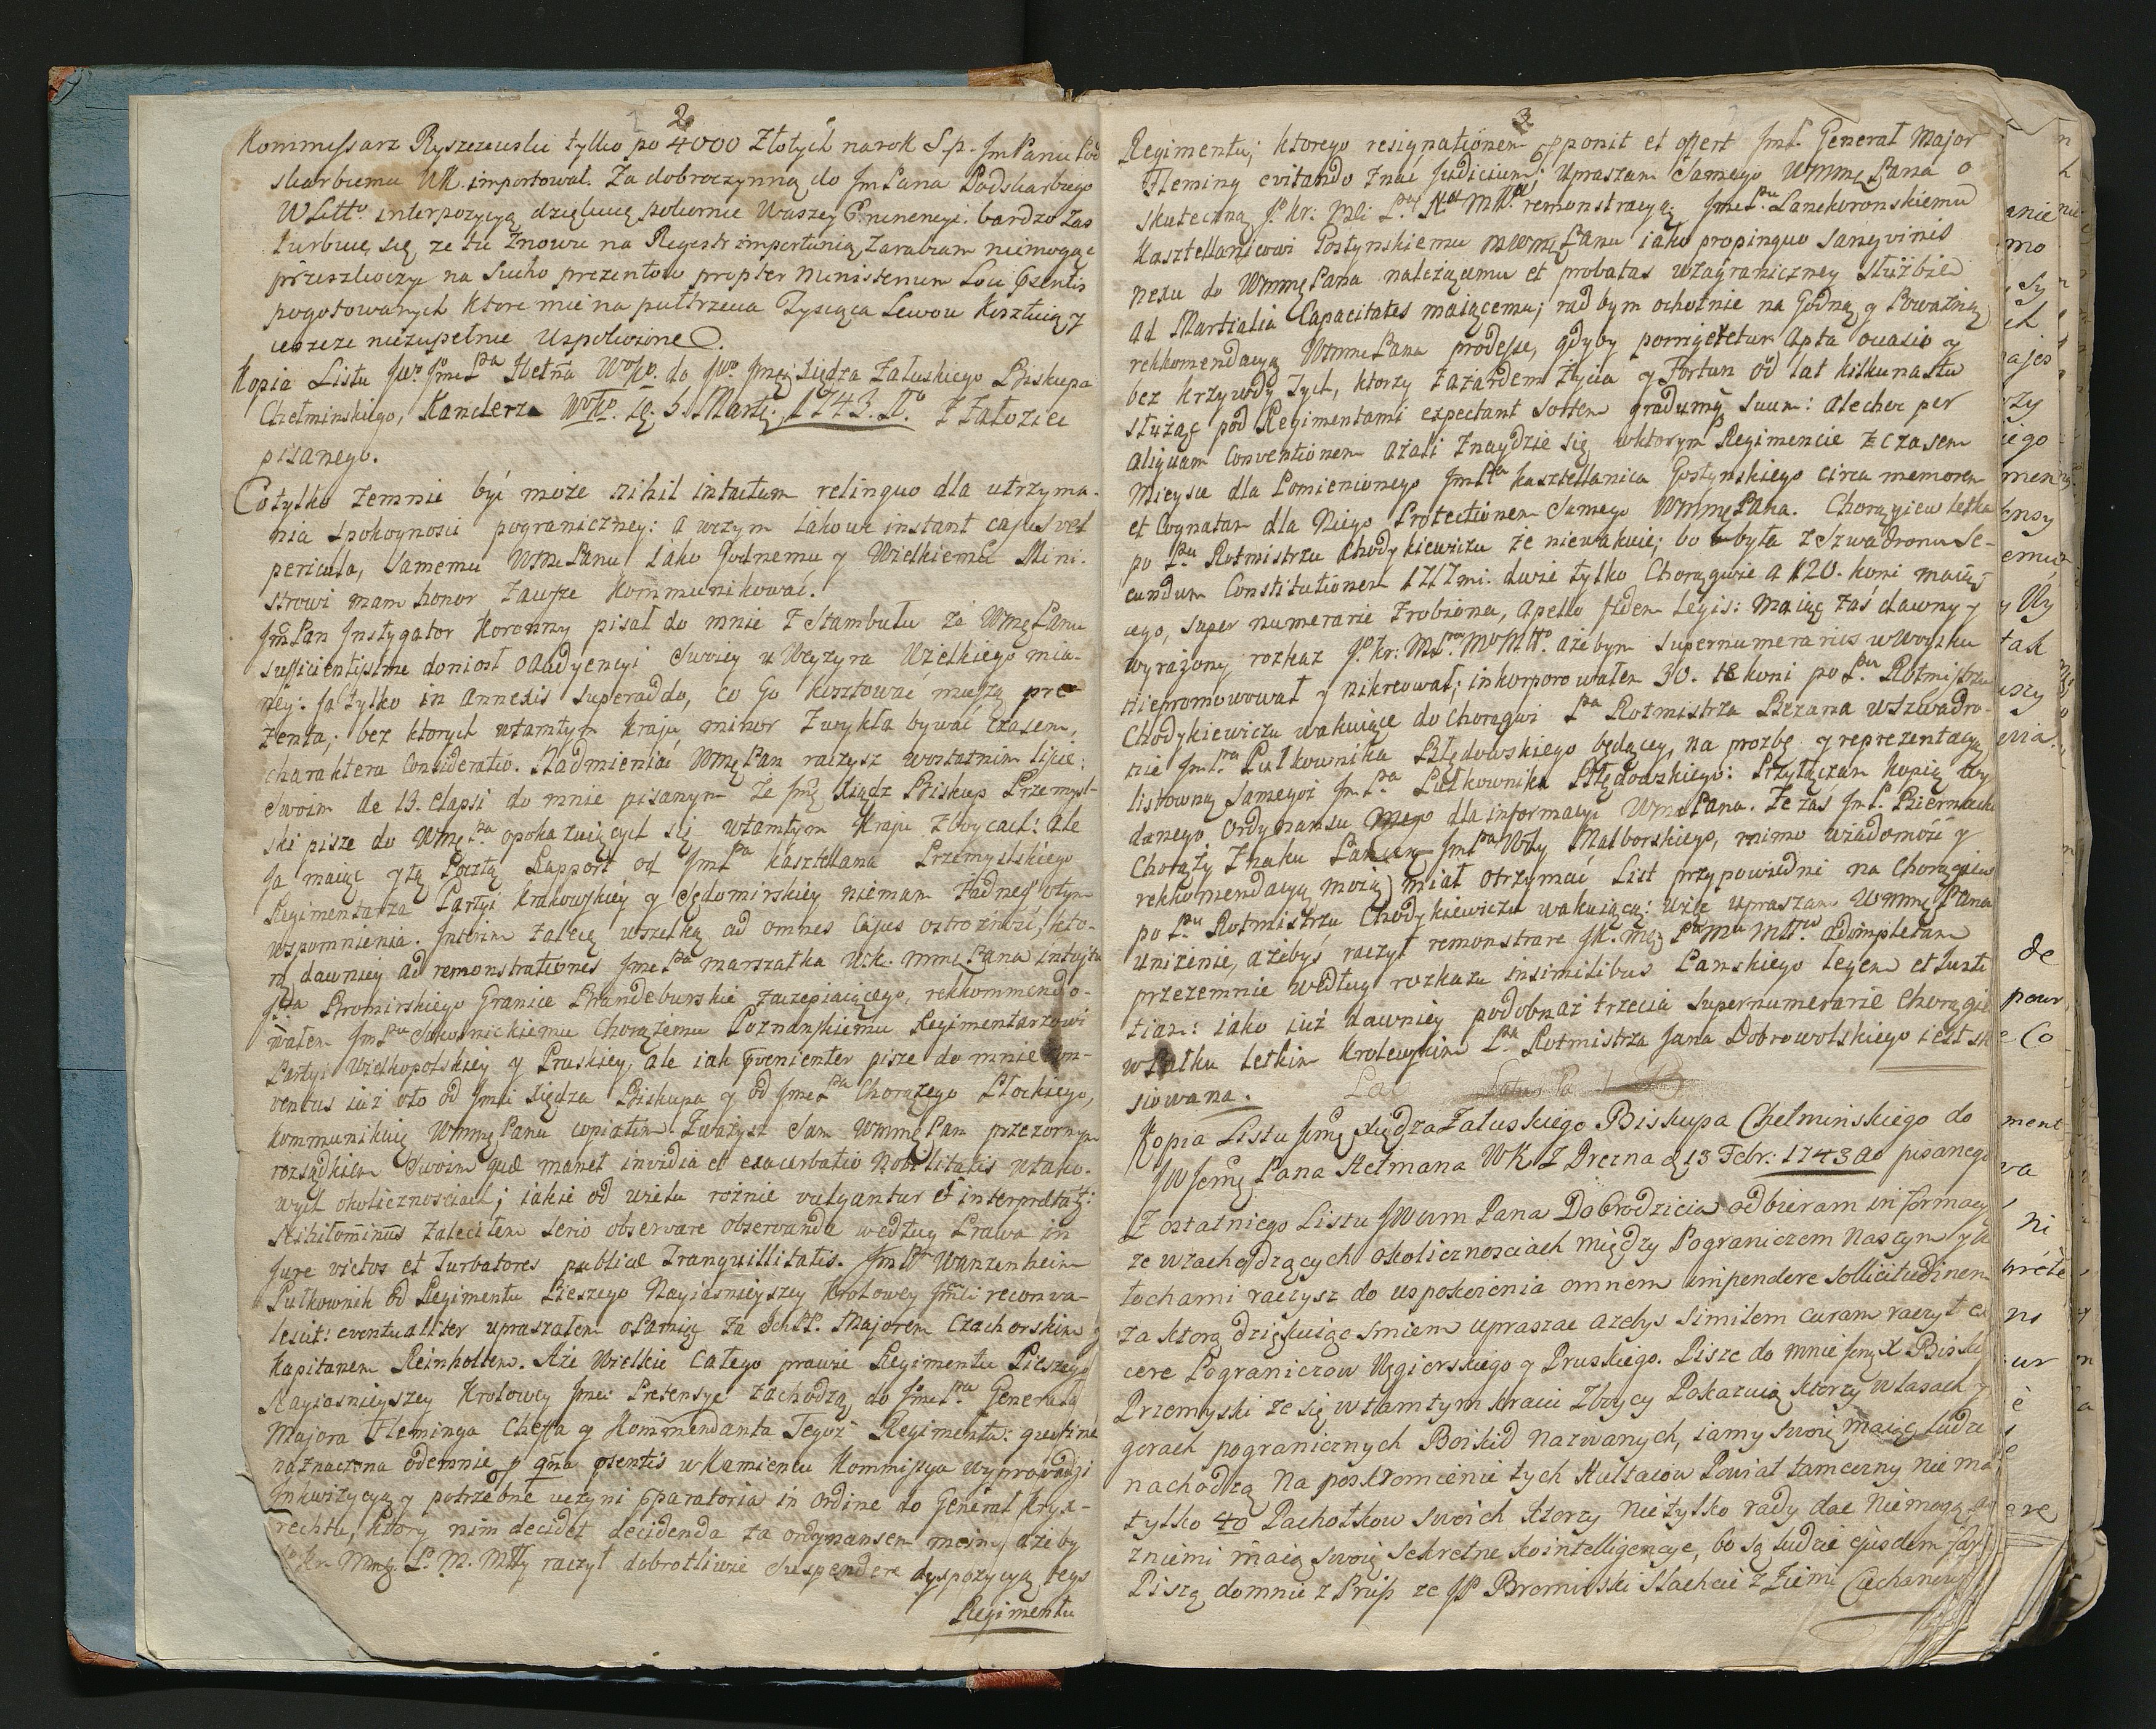 2
Kommissarz Ryszezewski tylko po 4000 Złotych narok S.p. Jm Panu Pod
skarbiemu WK. importował. Za dobroczynną do Jm Pana Podskarbiego
W Litto. interpozycyą dziękuię pokornie Waszey Eminencyi. bardzo zas
turbuię się ze tu znowu na Regestr importunią zarabiam niemogąc
przeszłoczy na sucho prezentow propter Ministerium Loci
pogotowanych ktore mie na pułtrzecia Tysiąca Lewow kosztuią y
ieszcze niezupełnie Uspokoione.
Kopia Listu Jwo. Jme Pa Hetna WoKo. do Jwo. Jmę Xiędza Załuskiego Biskupa
Chełminskiego, Kanclerza WoKo. 5. Marti. 1743. Z Załoziec
pisanego.
Cotylko zemnie być może nihil intactum relinquo dla utrzyma-
nia spokoyności pograniczney: a wczym iakowe instant casus vel
pericula, samemu WMM Panu iako Godnemu y Wielkiemu Mini-
strowi mam honor zawsze kommunikować.
Jm Pan Instygator Koronny pisał do mnie z Stambułu że WMę Panu
sufficientissime doniosł o Audyencyi swoiey u Wezyra Wielkiego mia-
ney: Ja tylko in annexis superaddo, co Go kosztować muszą pre-
zenta; bez ktorych wtamtym kraju minor zwykła bywać czasem,
charaktera Consideratio. Nadmieniać WMę Pan raczysz wostatnim liscie
swoim de 13. elapsi do mnie pisanym że Jmę Xiądz Biskup Przemysl-
ski pisze do WMę Pa o pokazuiących się wtamtym kraju zboycach: Ale
Ja maiąc y tą Pocztą Rapport od Jm Pa Kasztellana Przemyslskiego
Regimentarza Partyi Krakowskiey y Sędomirskiey niemam żadnego otym
wspomnienia. Interim zalecę wszelką ad omnes casus ostrożność, kto-
rą dawniey ad remonstrationes Jme Pa Marszałka W.K. MMę Pana intuitu
Jpa Bromirskiego Granice Brandeburskie zaczepiaiącego, rekkommendo-
wałem Jm Pu Skorosnickiemu Chorążemu Poznanskiemu Regimentarzowi
Partyi Wielkopolskiey y Pruskiey, ale iak pvenienter pisze do mnie con-
ventus iuż oto od Jmci Xiędza Biskupa y od Jme Pa Chorążego Płockiego,
kommunikuię WMMę Panu copiatim. Zważysz sam WMMę Pan przezornym
rozsądkiem swoim quæ manet invidia et exacerbatio Nobilitatis wtako-
wych okolicznosciach; iakie od wielu rożnie vulgantur et interpretatr:
Nihilominus zaleciłem serio observare observanda według Prawa in
jure victos et Turbatores publicæ Tranquillitatis. Jm Pr Wanzenheim
Pułkownik od Regimentu Pieszego Nayiasnieyszey Krolowey Jmci reconva-
lescit: eventualiter upraszałem o Pamięć za Ich PP. Majorem Czachorskim y
Kapitanem Reinholtem. Aże Wielkie całego prawie Regimentu Pieszego
Nayiasnieyszey Krolowey Jmci Pretensye zachodzą do Jme Pa Generała
Majora Fleminga Cheffa y Kommendanta Tegoż Regimentu: quo fine
naznaczona odemnie p qma psentis w Kamieńcu Kommissya wyprowadzi
Inkwizycyą y potrzebne uczyni pparatoria in ordine do Generał Kryx-
rechtu, ktory nim decidet decidenda za ordynansem moim, ażeby
Kr. Mmę. P. M. Mtty raczył dobrotliwie suspendere dyspozycyą tego
Regimentu
3
Regimentu; ktorego resignationem pponit et offert Jm P. Generał Major
Fleming evitando znać Judicium; Upraszam samego WMMę Pana o
skuteczną Jo Kr: Mci remonstracyą; Jme Pu Lanckoronskiemu
Kasztellanicowi Gostynskiemu MWMę Panu iako propinquo sangvinis
nexu do WMMę Pana należącemu et probatas wzagraniczney służbie
ad Martialia Capacitates maiącemu; rad bym ochotnie na Godną y Poważną
rekkomendacyą WMMę Pana prodesse, gdyby porrigeretur apta occasio y
bez krzywdy Tych, ktorzy zażardem życia y Fortun od lat kilkunastu
służąc pod Regimentami expectant sortem graduum suum: Alechoc per
aliquam Conventionem azali znaydzie się wktorym Regimencie z czasem
Mieysce dla Pomienionego Jm Pa Kasztellanica Gostynskiego circa memorem
et Cognatam dla Niego Protectionem samego WMMę Pana. Chorągiew letka
po Pu Rotmistrzu Chodykiewiczu że niewakuie; bo była z Szwadronu Se-
cundum Constitutionem 1717mi. dwie tylko Chorągwie a 120. koni maią-
cego, super numerarie zrobiona, Apello fidem legis: Maiąc zaś dawny y
wyrażony rozkaz Jo Kr: ażebym supernumeraries wWoysku
niepromowował y nikreował; inkorporowałem 30. koni po Pu Rotmistrzu
Chodykiewiczu wakuiące do Chorągwi Pa Rotmistrza Bizana wSzwadro-
nie Jm Pa Pułkownika Błędowskiego będącey, na prozbę y reprezentacyą
listowną samegoż Jm Pa Pułkownika Błędowskiego: Przyłączam kopią Wy
danego Ordynansu mego dla informacyi WMM Pana. Że zaś Jm P. Biernacki
Chorąży Znaku Pancer. Jm Pa Wdy Malborskiego, mimo wiadomość y
rekkomendacyą moią miał otrzymać List przypowiedni na Chorągiew
po Pu Rotmistrzu Chodykiewiczu wakuiącą: więc upraszam WMMę Pana
uniżenie, ażebyś raczył remonstrare adimpletam
przezemnie według rozkazu insimilibus Panskiego legem et Justi
tiam: iako iuż dawniey podobnaż trzecia supernumerarie Chorągiew
wPułku letkim Krolewskim Pa Rotmistrza Jana Dobrowolskiego iest sk
siowana.
Kopia Listu Jmę Xiędza Załuskiego Biskupa Chełminskiego do
JW Jemę Pana Hetmana WK Z Drezna d 13 Febr: 1743 Ao pisanego
Z ostatniego Listu JWam Pana Dobrodzicia odbieram informacy
ze wzachodzących okolicznosciach między Pograniczem Naszym y Wo
łochami raczysz do uspokoienia omnem impendere sollicitudinem
za ktorą dziękuiąc smiem upraszac azebys similem curam raczył es
cere Pograniczow Węgierskiego y Pruskiego. Pisze do mnie Jmę X Bisk
Przemyski ze się wtamtym kraiu Zboycy Pokazuią ktorzy w lasach y
gorach pogranicznych Beskid nazwanych, iamy swoie maiąc ludzi
nachodzą Na poskromienie tych Hultaiow Powiat tameczny nie ma
tylko 40 Pachołkow swoich ktorzy nietylko rady dac niemogą, a
zniemi maią swoię sekretne kointelligencye, bo są ludzie ejusdem
Piszą domnie z Pruss ze JP Bromirski Slachcic z Ziemi Ciechanows